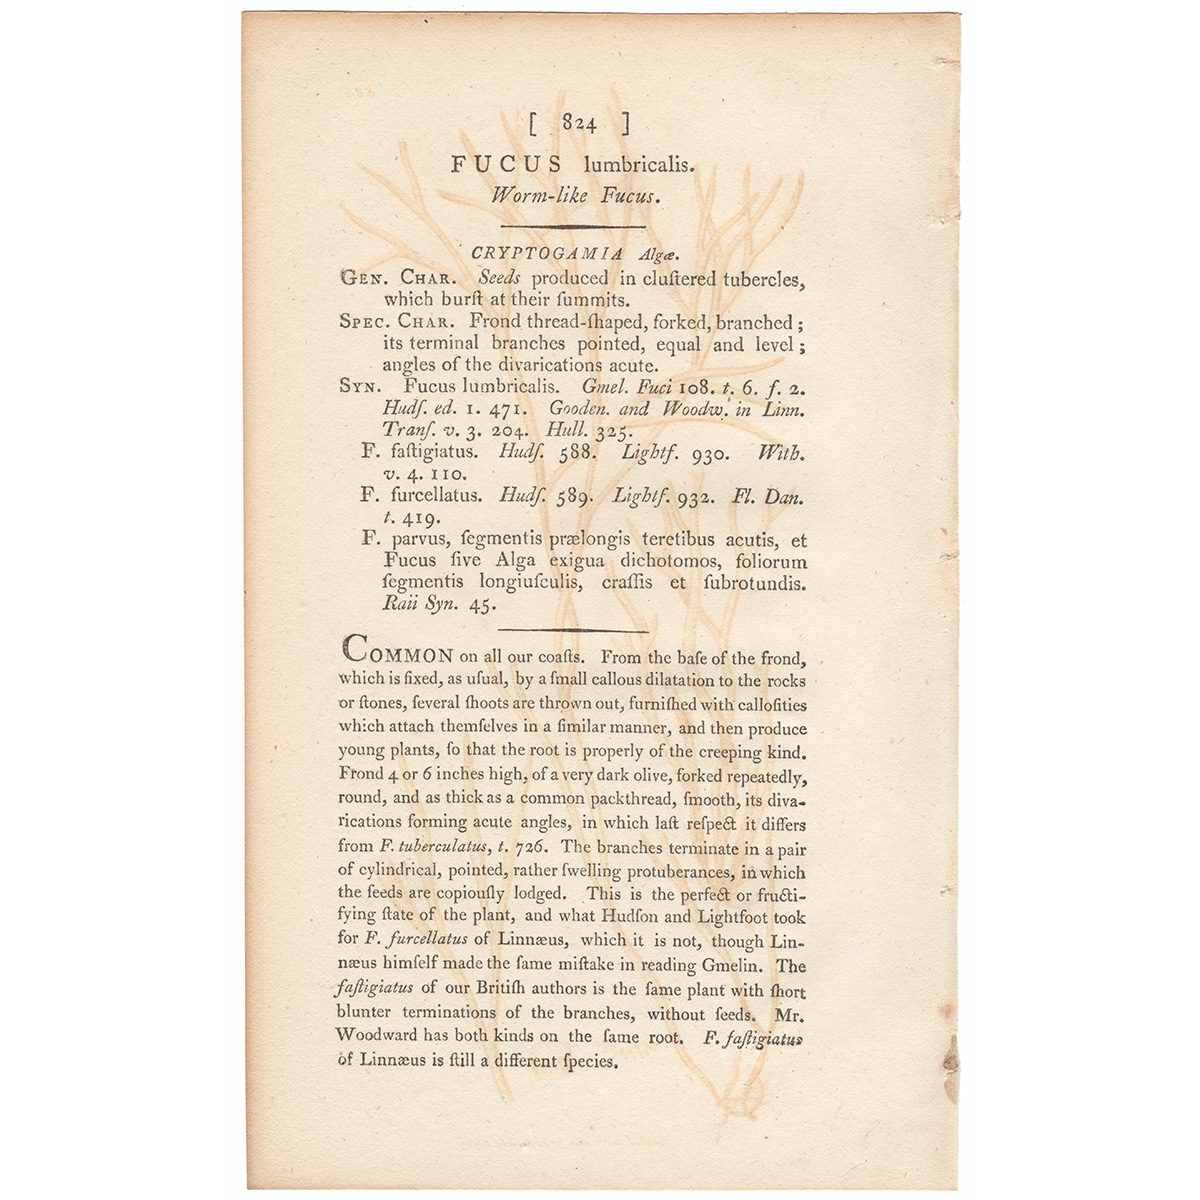 [ 824 ]
FUCUS lumbricalis.
Worm-like Fucus.
CRYPTOGAMIA Algæ.
GEN. CHAR. Seeds produced in cluſtered tubercles,
which burſt at their ſummits.
SPEC. CHAR. Frond thread-ſhaped, forked, branched;
its terminal branches pointed, equal and level;
angles of the divarications acute.
SYN. Fucus lumbricalis. Gmel. Fuci 108. t. 6. f. 2.
Hudſ. ed. 1. 471. Gooden. and Woodw. in Linn.
Tranſ. v. 3. 204. Hull. 325.
F. faſtigiatus. Hudſ. 588. Lightf. 930. With.
v. 4. 110.
F. furcellatus. Hudſ. 589. Lightf. 932. Fl. Dan.
t. 419.
F. parvus, ſegmentis prælongis teretibus acutis, et
Fucus ſive Alga exigua dichotomos, foliorum
ſegmentis longiuſculis, craſſis et ſubrotundis.
Raii Syn. 45.
COMMON on all our coaſts. From the baſe of the frond,
which is fixed, as uſual, by a ſmall callous dilatation to the rocks
or ſtones, ſeveral ſhoots are thrown out, furniſhed with calloſities
which attach themſelves in a ſimilar manner, and then produce
young plants, ſo that the root is properly of the creeping kind.
Frond 4 or 6 inches high, of a very dark olive, forked repeatedly,
round, and as thick as a common packthread, ſmooth, its diva-
rications forming acute angles, in which laſt reſpect it differs
from F. tuberculatus, t. 726. The branches terminate in a pair
of cylindrical, pointed, rather ſwelling protuberances, in which
the ſeeds are copiouſly lodged. This is the perfect or fructi-
fying ſtate of the plant, and what Hudſon and Lightfoot took
for F. furcellatus of Linnæus, which it is not, though Lin-
næus himſelf made the ſame miſtake in reading Gmelin. The
faſtigiatus of our Britiſh authors is the ſame plant with ſhort
blunter terminations of the branches, without ſeeds. Mr.
Woodward has both kinds on the ſame root. F. faſtigiatus
of Linnæus is ſtill a different ſpecies.